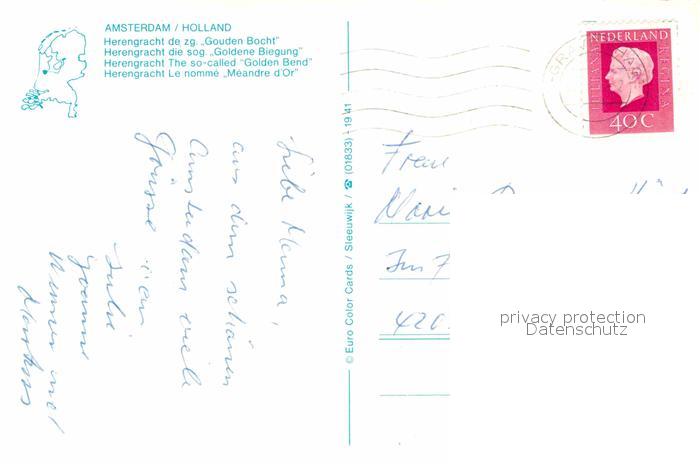 AMSTERDAM / HOLLAND
Herengracht de zg. „Gouden Bocht"
Herengracht die sog. „Goldene Biegung"
Herengracht The so-called "Golden Bend"
Herengracht Le nommé „Méandre d'Or"
Liebe Mama,
aus dem schönen
Amsterdam viele
Grüsse von
Julie
Werner und
Markus
© Euro Color Cards / Sleeuwijk / ☎ (01833) - 1941
NEDERLAND
JULIANA REGINA
40 C
Frau
Im
420
privacy protection
Datenschutz